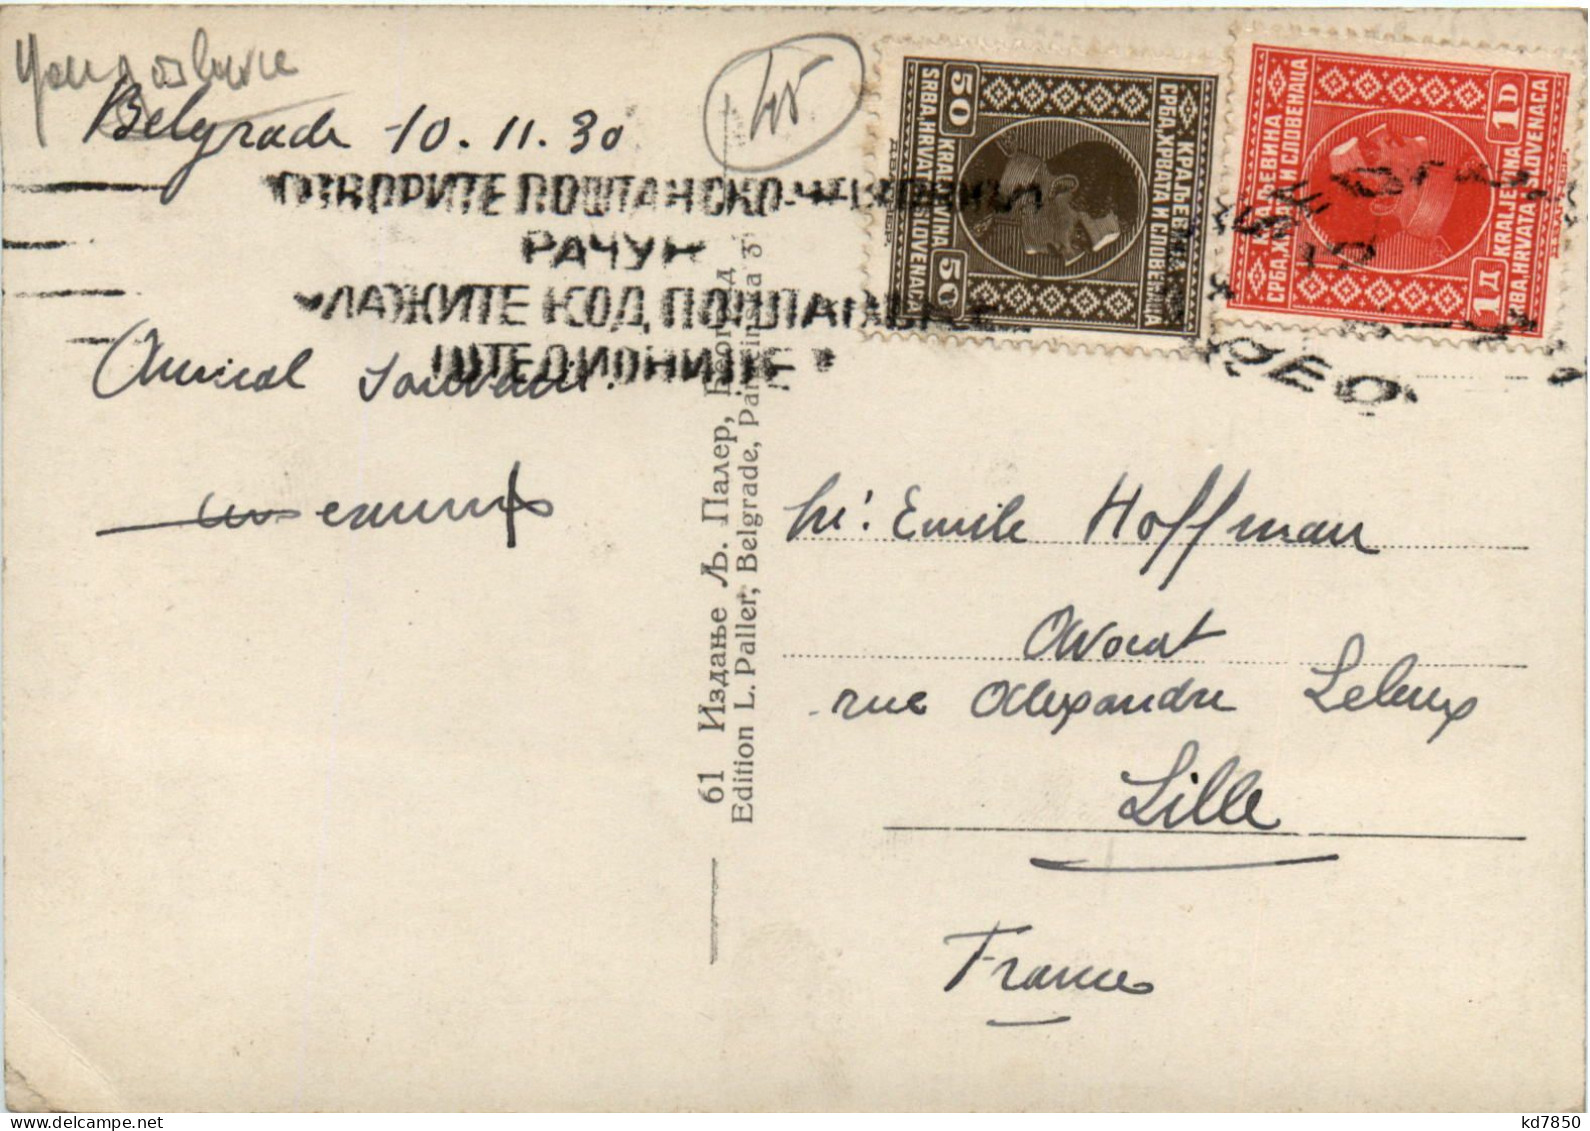 Yougoslavie
Belgrade 10.11.30
ОТВОРИТЕ ПОШТАНСКО-ЧЕКОВНИ
РАЧУН
УЛАЖИТЕ КОД ПОШТАНСКЕ
ШТЕДИОНИЦЕ
Amical souvenir.
61 Издање Љ. Палер, Београд
Edition L. Paller, Belgrade,
50 50
СРБА, ХРВАТА И СЛОВЕНАЦА
КРАЉЕВИНА
KRALJEVINA
SRBA, HRVATA I SLOVENACA
1D 1Д
КРАЉЕВИНА
СРБА, ХРВАТА И СЛОВЕНАЦА
KRALJEVINA
SRBA, HRVATA I SLOVENACA
Emile Hoffman
Avocat
rue Alexandre Leleux
Lille
France
kd7850